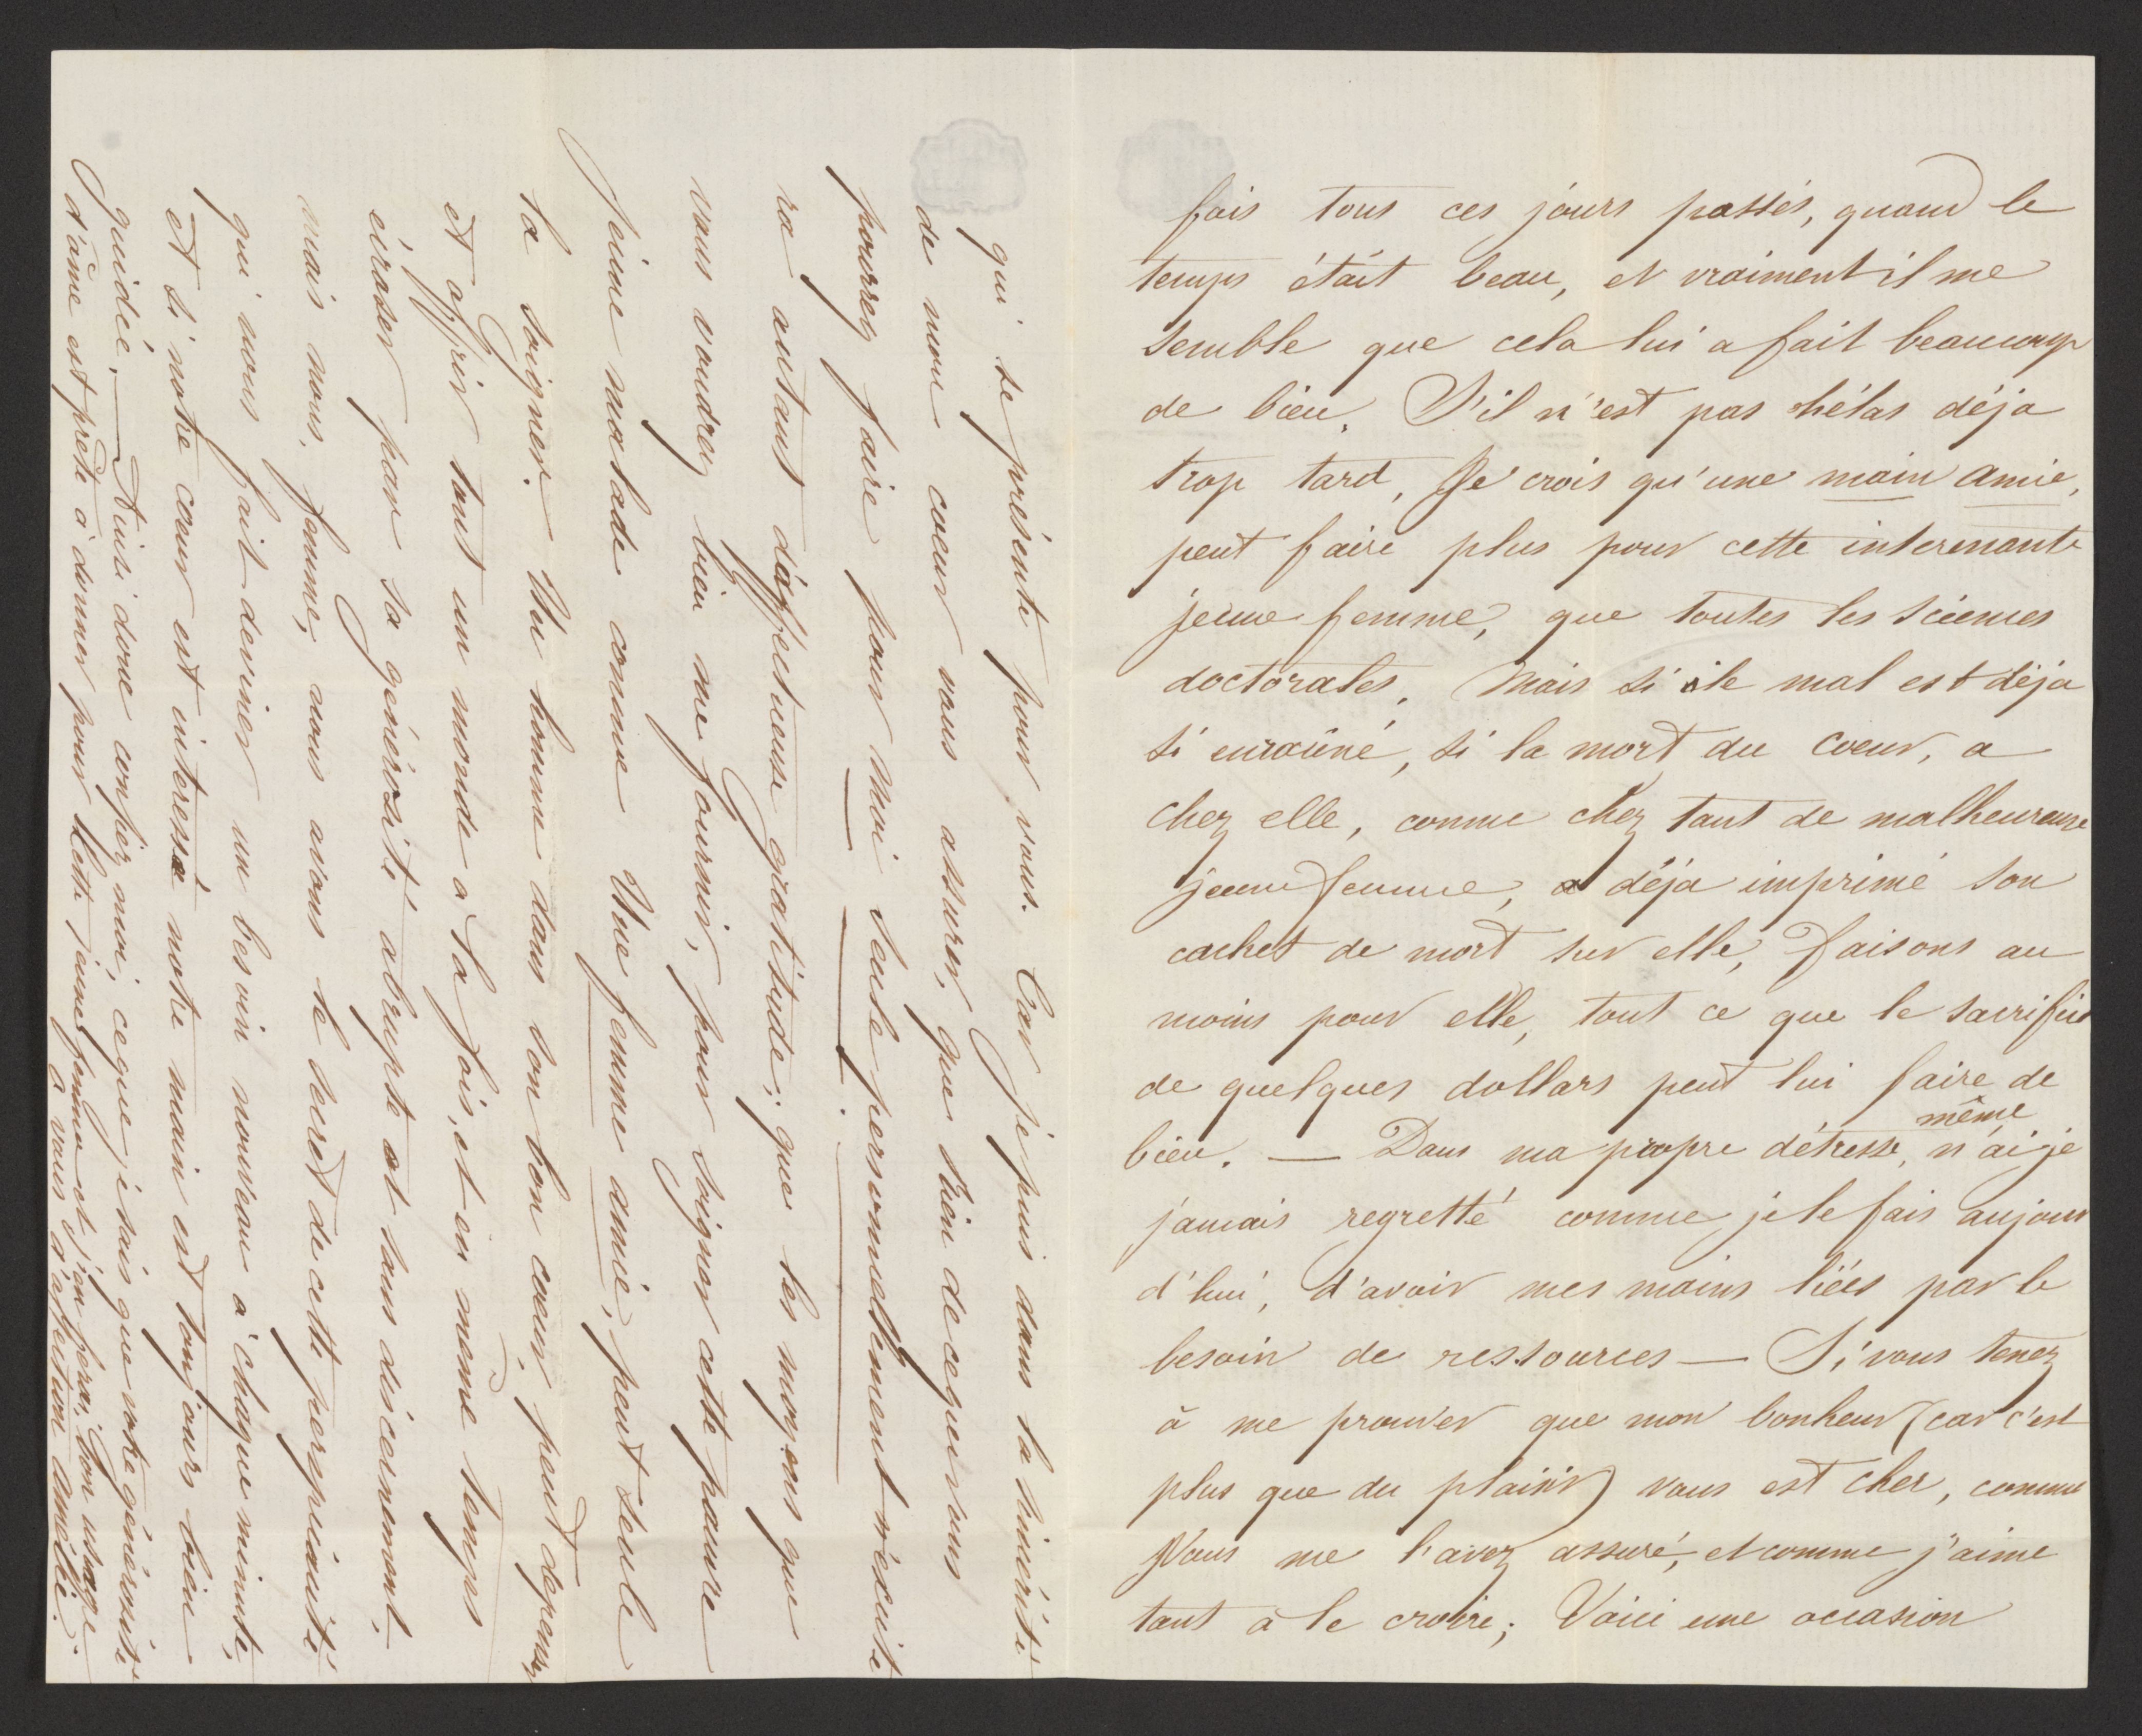 fais tous ces jours passés, quand le
temps était beau, et vraiment il me
semble que cela lui a fait beaucoup
de bien. S'il n'est pas hélas déja
trop tard, Je crois qu'une main amie,
peut faire plus pour cette interessante
jeune femme, que toutes les sciences
doctorales. Mais si le mal est déja
si enraciné, si la mort du coeur, a
chez elle, comme chez tant de malheureuse
jeune femme, a déja imprimé son
cachet de mort sur elle, faisons au
moins pour elle, tout ce que le sacrifice
de quelques dollars peut lui faire de
bien. — Dans ma propre détresse même, n'ai je
jamais regretté comme je le fais aujour
d'hui, d'avoir mes mains liées par le
besoin de ressources — Si vous tenez
à me prouver que mon bonheur (car c'est
plus que du plaisir) vous est cher, comme
Vous me l'avez assuré, et comme j'aime
tant à le croire; Voici une occasion
qui se présente pour vous. Car je puis dans la sincérité
de mon coeur vous assurer, que rien de ce que vous
pourrez faire pour moi seule personnellement n'excite
ra autant d'affectueuse gratitude; que les moyens que
vous voudrez bien me fournir, pour soigner cette pauvre
jeune malade comme Une femme amie, peut seule
la soigner. Un homme dans son bon coeur, peut depenser
et offrir tout un monde à la fois, et en même temps
écraser par sa générosité abrupte et sans discernement.
mais nous, femme, nous avons le secret de cette perspicacité
qui nous fait deviner un besoin nouveau à chaque minute,
et si notre coeur est interessé notre main est toujours bien
guidée. — Ainsi donc confiez moi, ce que je sais que votre générosité
d'âme est prête à donner pour cette jeune femme et j'en ferai bon usage
à vous d'affection amélie.